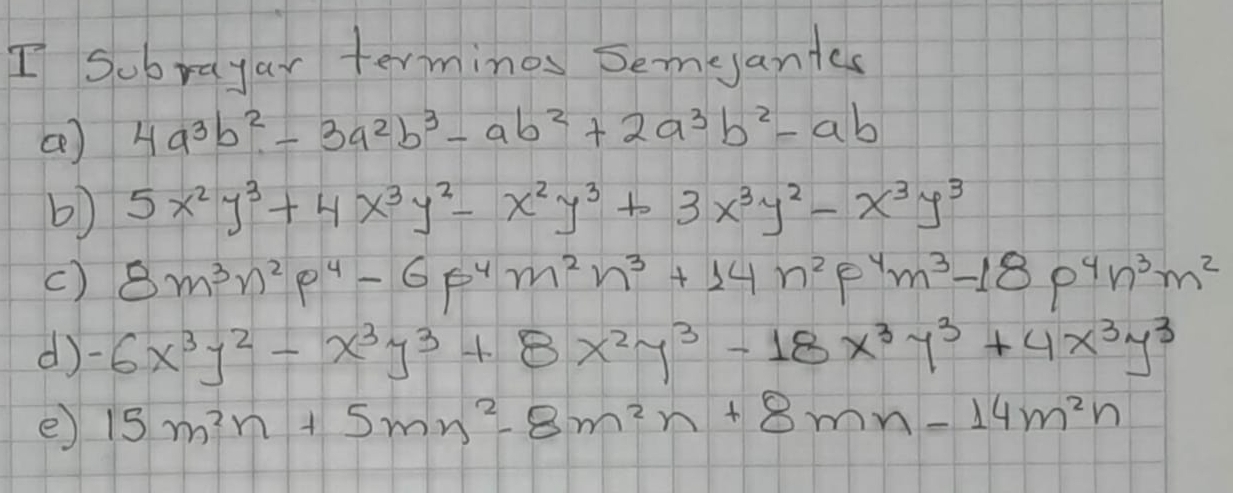 I Subrayar terminos Semejantes
a) 4a³b² - 3a²b³ - ab² + 2a³b² - ab
b) 5x²y³ + 4x³y² - x²y³ + 3x³y² - x³y³
c) 8m³n²p⁴ - 6p⁴m²n³ + 14n²p⁴m³ - 18p⁴n³m²
d) -6x³y² - x³y³ + 8x²y³ - 18x³y³ + 4x³y³
e) 15m²n + 5mn² - 8m²n + 8mn - 14m²n